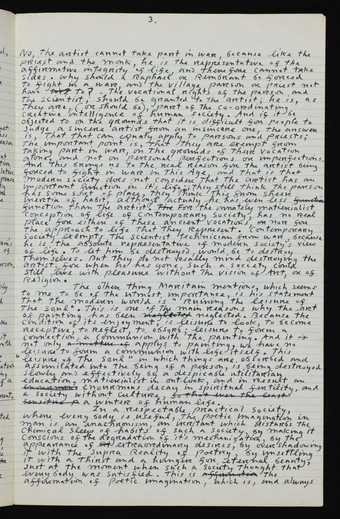 3.
No, the artist cannot take part in war, because like the
priest and the monk, he is the representative of the
affirmative integrity of life, and therefore cannot take
sides. Why should a Raphael or Rembrant be forced
to fight in a war, and the village parson or priest not
have to? The vocational rights of the parson, and
the scientist, should be granted to the artist; he is, as
they are, (or should be), part of the co-ordinating
creative intelligence of human society. And if it is
objected to on the grounds that it is difficult for people to
judge a sincere artist from an insincere one, the answer
is, that that can equally apply to parsons and priests.
The important point is, that they are exempt from
taking part in war, on the grounds of their vocation
alone, and not on personal perfections or imperfections.
And this brings us to the real reason for the artist being
forced to fight in war in this Age, and that is that
modern society does not consider that the artist has an
important function in its life. They still think the parson
has some sort of place, they think this from sheer
inertia of habit, although actually he has even less
function than the artist. For the innately materialist
conception of life of Contemporary Society, has no real
place for either of these ancient vocations, or for
the approach to life that they represent. Contemporary
Society exempts the Scientist Technician from war, because
he is the absolute representative of modern society's view
of life. To let him be destroyed would be to destroy
themselves. But they do not visibly mind destroying the
artist, for when he has gone, such a society could
still live with pleasure without the vision of Art, or of
Religion.
The other thing Maritain mentions, which seems
to me to be of the utmost importance, is his statement
that the modern world is "Ruining the leisure of
the soul". This is one of the main reasons why the art
of painting has been neglected. Because the
condition of its enjoyment, is leisure to look; to become
receptive, to reflect, to absorb; leisure to form a
connection, a communion with the painting. And it
not only applies to painting; we have no
leisure to form a communion with life itself. This
leisure of the soul in which things are absorbed and
assimilated into the being of a person, is being destroyed
slowly and effectively by a despicable utilitarian
education, materialist in outlook, and in result an
enormous decay in spiritual fertility, and
a society without culture,
a winter of human life.
In a respectable, practical society,
where everybody is useful, the poetic imagination in
man is an anachronism, an irritant which disturbs the
chemical sleep of habits of such a society, by making it
conscious of the degradation of its mechanization, by the
appearance of extraordinary desires, by overshadowing
it with the Supra Reality of Poetry, by unsettling
it with a thirst and a hunger for eternal beauty,
just at the moment when such a society thought that
everybody was satisfied. This is the
affirmation of Poetic imagination, which is, and always